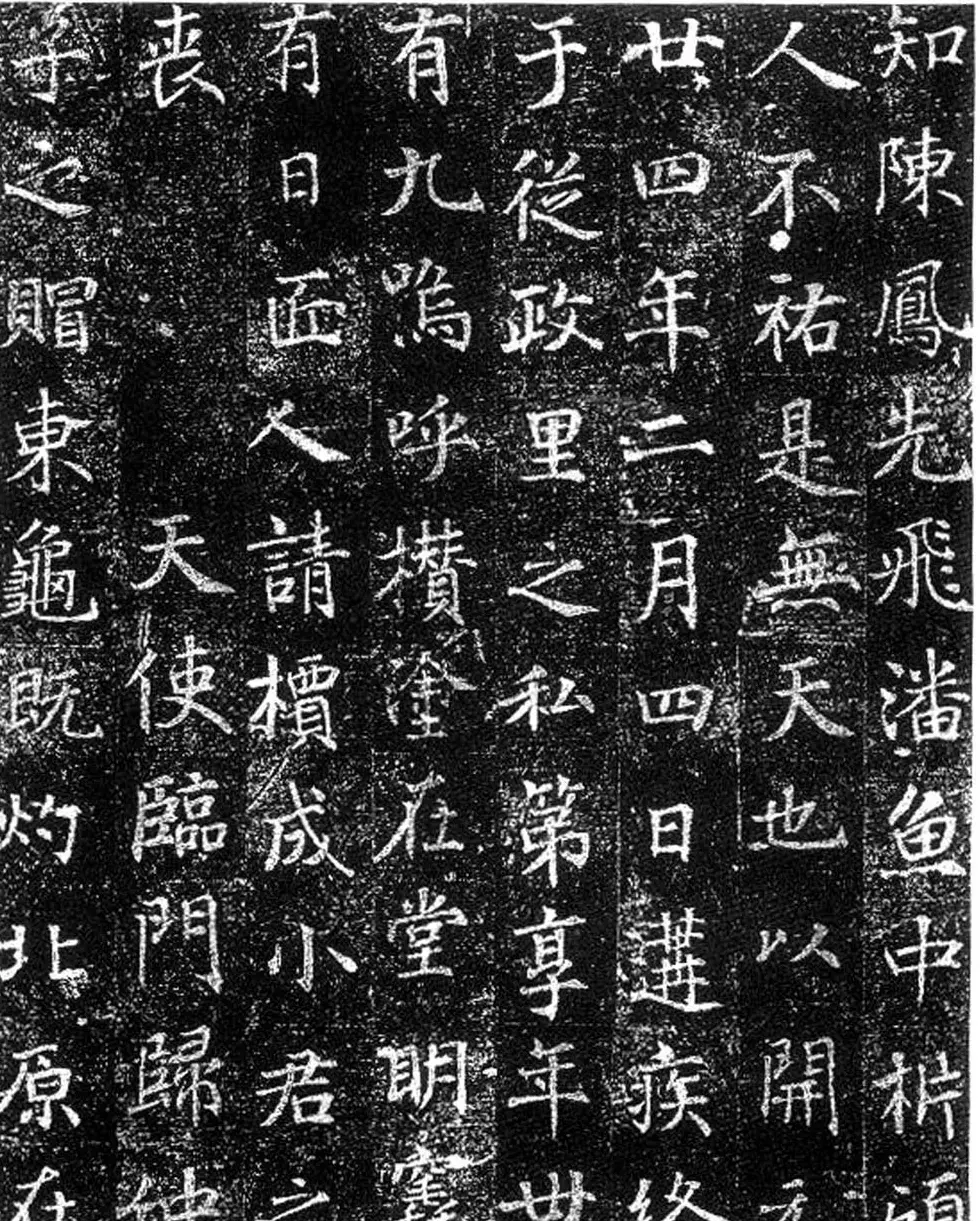 知陳鳳先飛潘魚中析
人不祐是無天也以開元
廿四年二月四日遘疾終
于從政里之私第享年卌
有九嗚呼攢塗在堂明
有日匠人請檟成小君之
喪 天使臨門歸
子之賵東龜既灼北原在